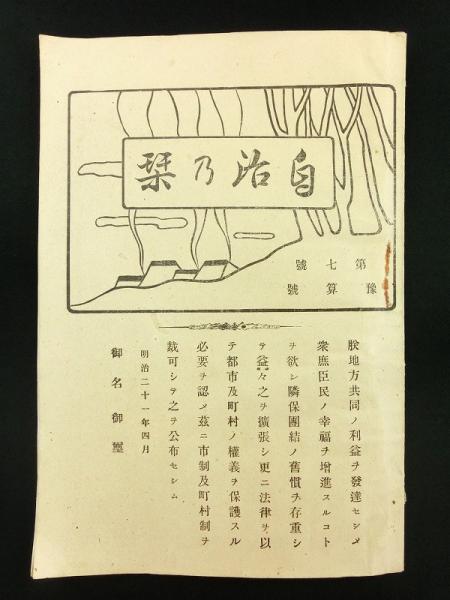 自治乃栞
第七號
豫算號
朕地方共同ノ利益ヲ發達セシメ
衆庶臣民ノ幸福ヲ增進スルコト
ヲ欲シ隣保團結ノ舊慣ヲ存重シ
テ益々之ヲ擴張シ更ニ法律ヲ以
テ都市及町村ノ權義ヲ保護スル
必要ヲ認メ茲ニ市制及町村制ヲ
裁可シテ之ヲ公布セシム
明治二十一年四月
御名御璽